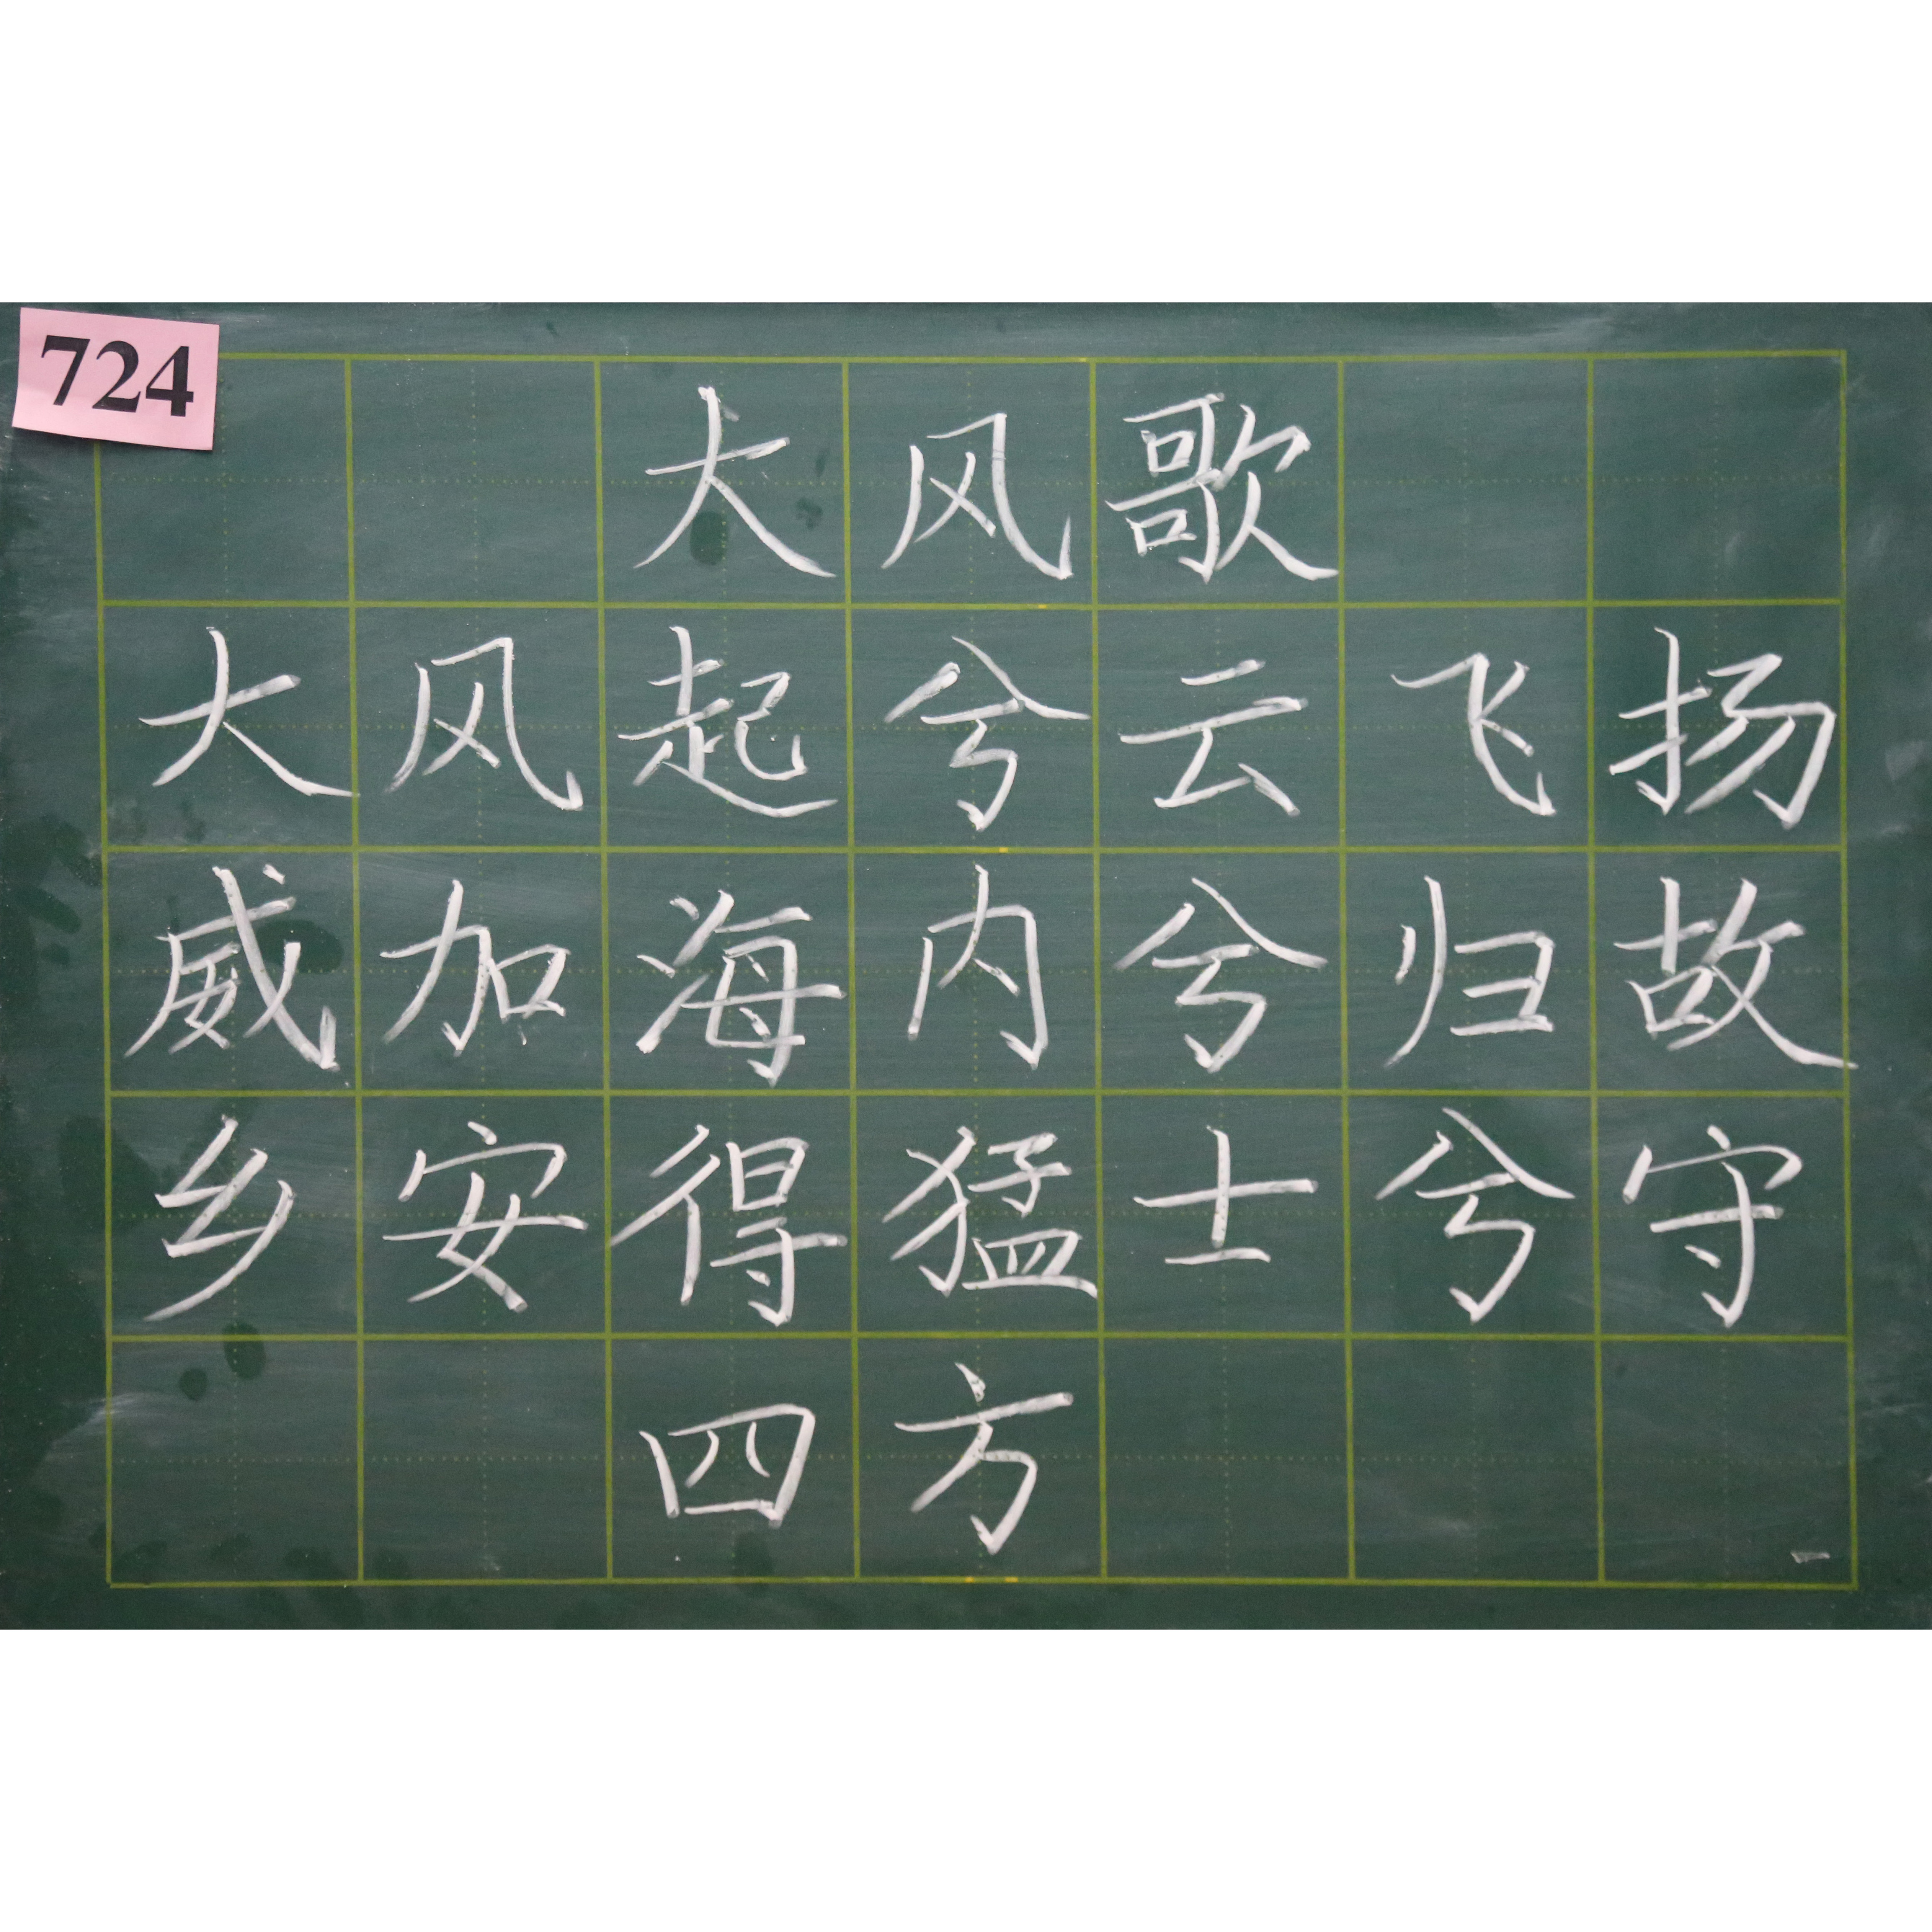 724
大风歌
大风起兮云飞扬
威加海内兮归故
乡安得猛士兮守
四方